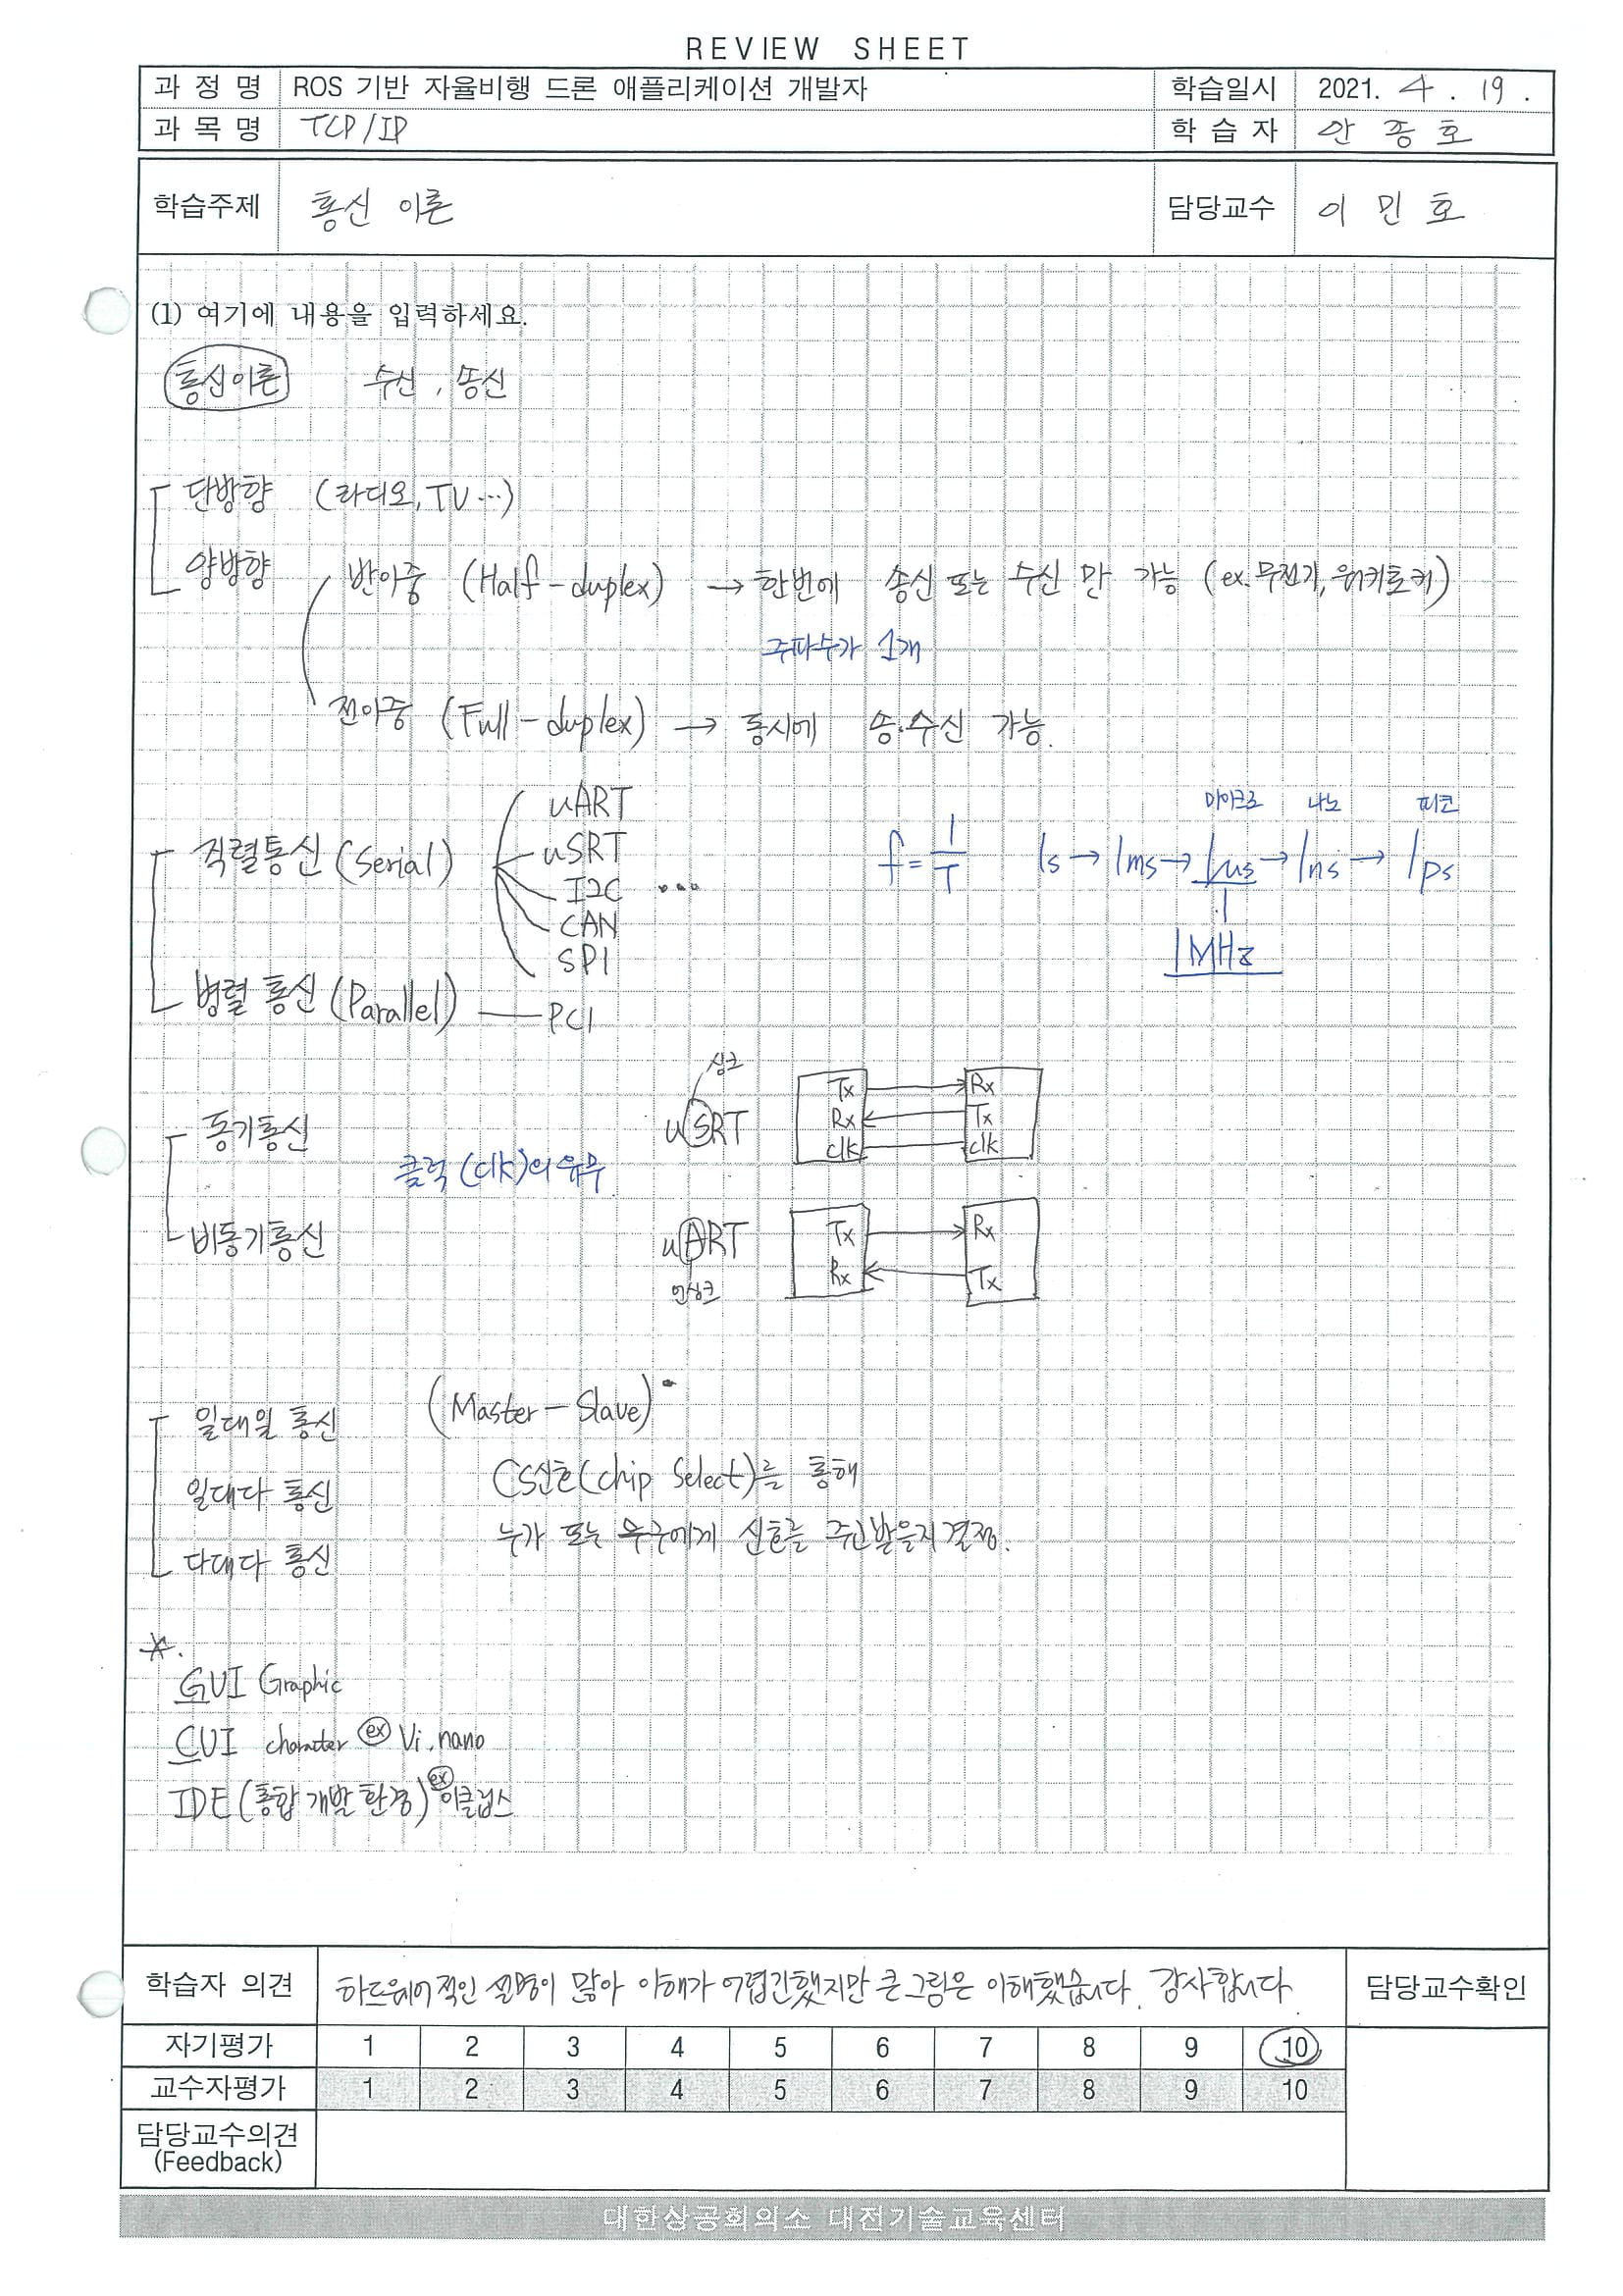 REVIEW SHEET
과 정 명 ROS 기반 자율비행 드론 애플리케이션 개발자 학습일시 2021. 4 . 19 .
과 목 명 TCP/IP 학 습 자 안 종 호
학습주제 통신 이론 담당교수 이 민 호
(1) 여기에 내용을 입력하세요.
통신이론 수신, 송신
단방향 (라디오, TV …)
양방향 반이중 (Half-duplex) → 한번에 송신 또는 수신 만 가능 (ex. 무전기, 워키토키)
주파수가 1개
전이중 (Full-duplex) → 동시에 송·수신 가능.
uART
마이크로 나노 피코
직렬통신 (Serial) uSRT f = 1/T 1s → 1ms → 1us → 1ns → 1ps
I2C …
CAN 1MHz
SPI
병렬 통신 (Parallel) PCI
싱크
Tx Rx
동기통신 uSRT Rx Tx
clk clk
클럭 (clk)의 유무
비동기통신 uART Tx Rx
Rx Tx
언싱크
일대일 통신 (Master-Slave)
일대다 통신 CS신호(chip Select)를 통해
누가 또는 누구에게 신호를 주고받을지 결정.
다대다 통신
*.
GUI Graphic
CUI character ex Vi, nano
IDE (통합 개발 환경) ex 이클립스
학습자 의견 하드웨어적인 설명이 많아 이해가 어렵긴했지만 큰그림은 이해했습니다. 감사합니다. 담당교수확인
자기평가 1 2 3 4 5 6 7 8 9 10
교수자평가 1 2 3 4 5 6 7 8 9 10
담당교수의견
(Feedback)
대한상공회의소 대전기술교육센터